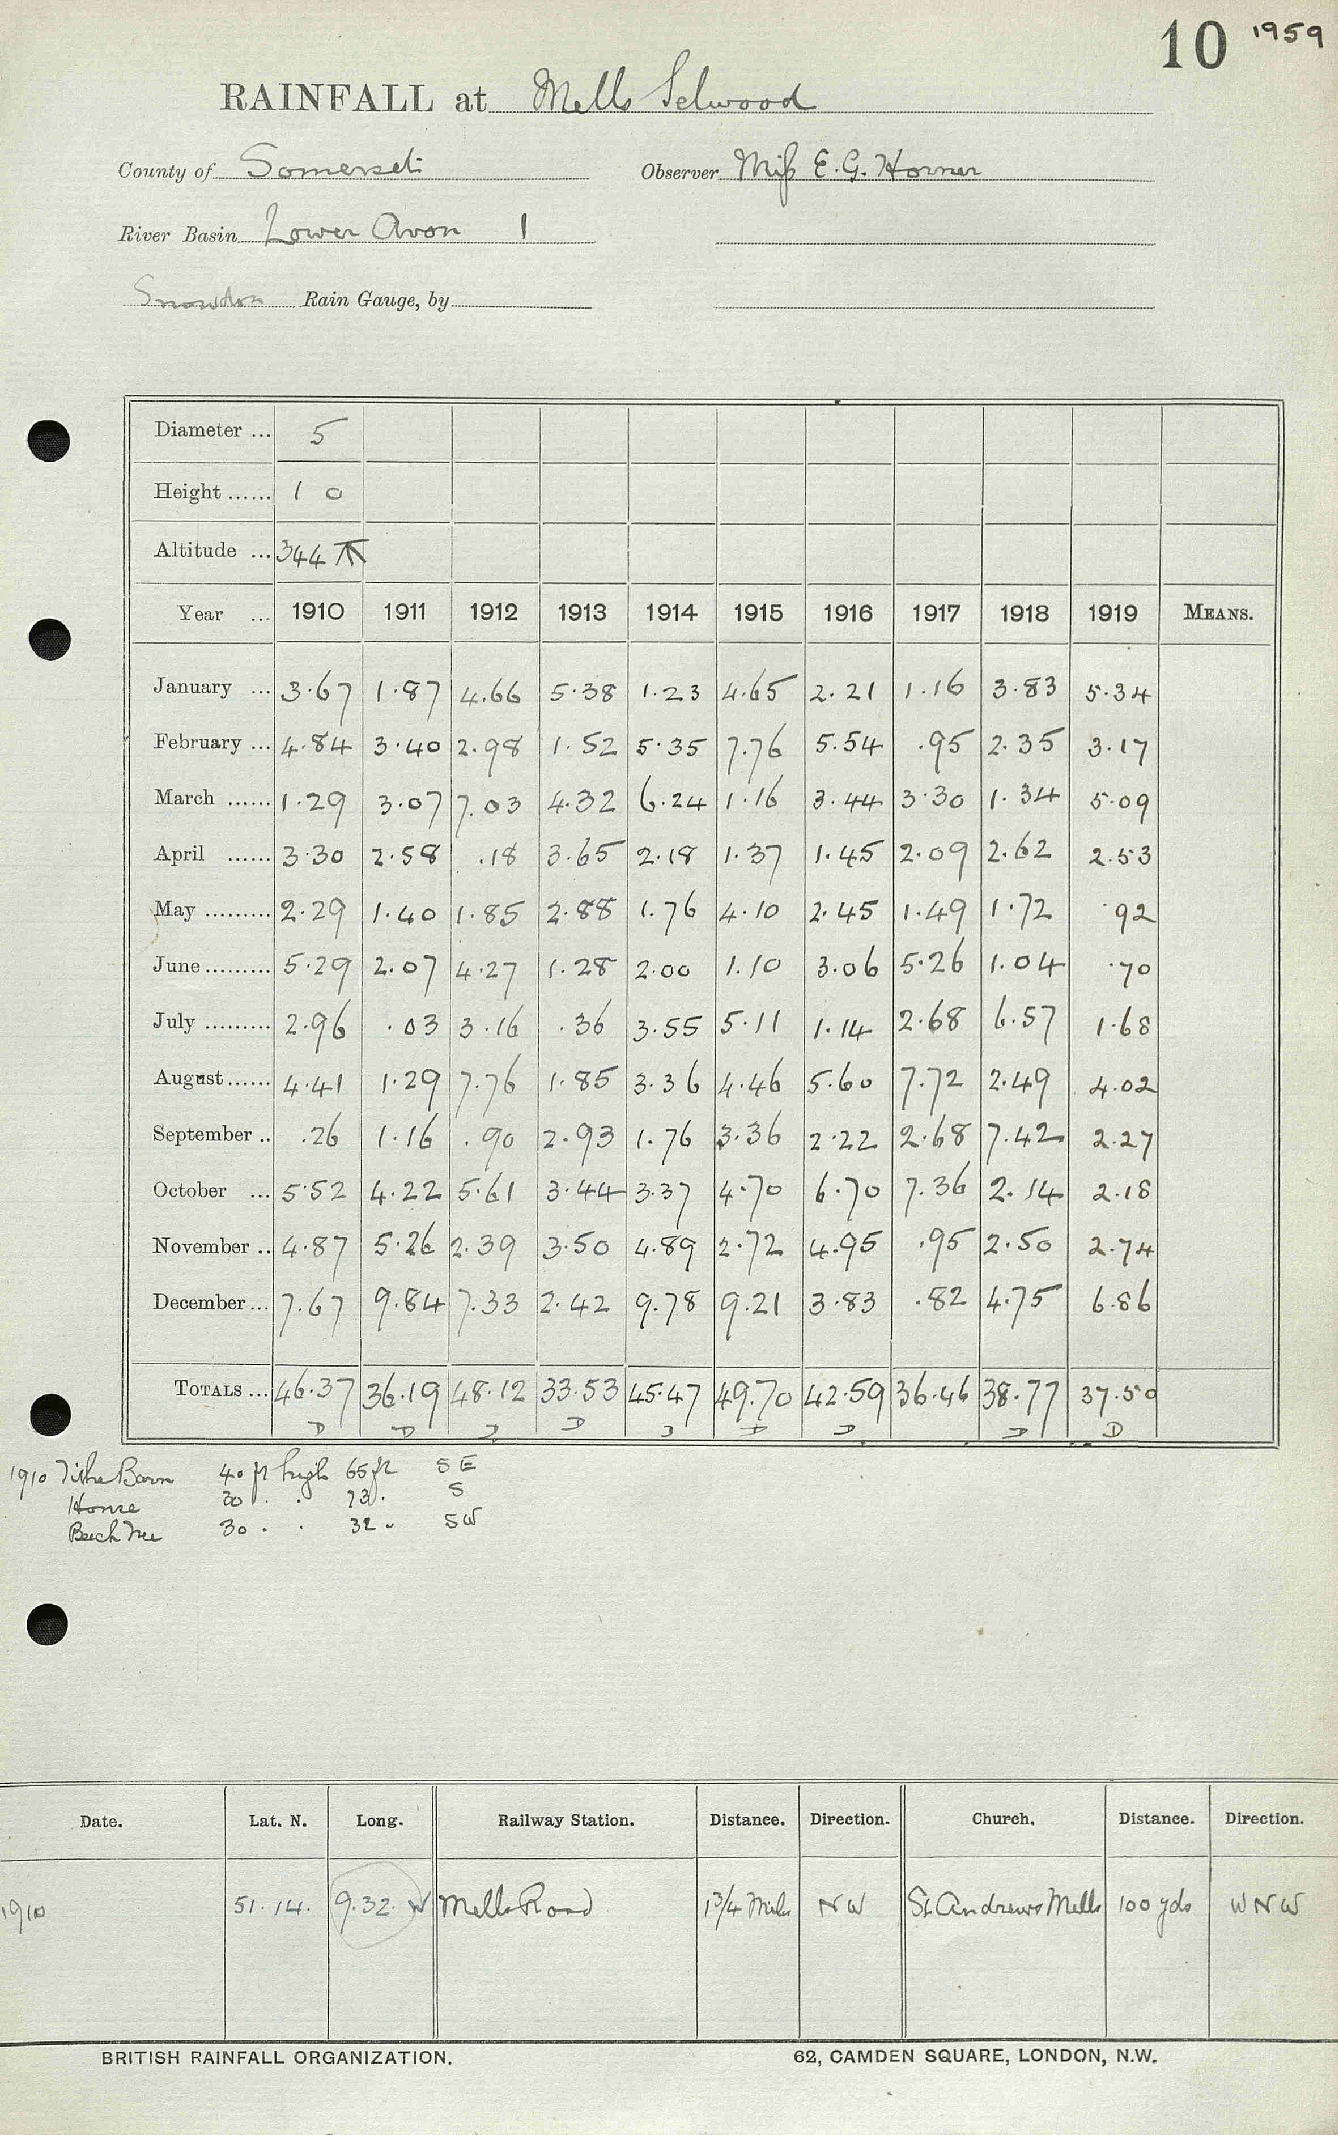 10 1959
RAINFALL at Mells Selwood
County of Somerset Observer Miss E. G. Horner
River Basin Lower Avon 1
Snowdon Rain Gauge, by
Diameter ... 5
Height ...... 1 0
Altitude ... 344
Year ... 1910 1911 1912 1913 1914 1915 1916 1917 1918 1919 MEANS.
January ... 3.67 1.87 4.66 5.38 1.23 4.65 2.21 1.16 3.83 5.34
February ... 4.84 3.40 2.98 1.52 5.35 7.76 5.54 .95 2.35 3.17
March ...... 1.29 3.07 7.03 4.32 6.24 1.16 3.44 3.30 1.34 5.09
April ...... 3.30 2.58 .18 3.65 2.18 1.37 1.45 2.09 2.62 2.53
May ......... 2.29 1.40 1.85 2.88 1.76 4.10 2.45 1.49 1.72 .92
June ......... 5.29 2.07 4.27 1.28 2.00 1.10 3.06 5.26 1.04 .70
July ......... 2.96 .03 3.16 .36 3.55 5.11 1.14 2.68 6.57 1.68
August ...... 4.41 1.29 7.76 1.85 3.36 4.46 5.60 7.72 2.49 4.02
September .. .26 1.16 .90 2.93 1.76 3.36 2.22 2.68 7.42 2.27
October ... 5.52 4.22 5.61 3.44 3.37 4.70 6.70 7.36 2.14 2.18
November .. 4.87 5.26 2.39 3.50 4.89 2.72 4.95 .95 2.50 2.74
December ... 7.67 9.84 7.33 2.42 9.78 9.21 3.83 .82 4.75 6.86
TOTALS ... 46.37 36.19 48.12 33.53 45.47 49.70 42.59 36.46 38.77 37.50
D D D D D D D D D
1910 Tithe Barn 40 ft high 65 ft SE
House 30 . . 73 . S
Beech Tree 30 . . 32 " SW
Date. Lat. N. Long. Railway Station. Distance. Direction. Church. Distance. Direction.
1910 51.14. 9.32 W Mells Road 1 3/4 Miles NW St. Andrews Mells 100 yds WNW
BRITISH RAINFALL ORGANIZATION. 62, CAMDEN SQUARE, LONDON, N.W.